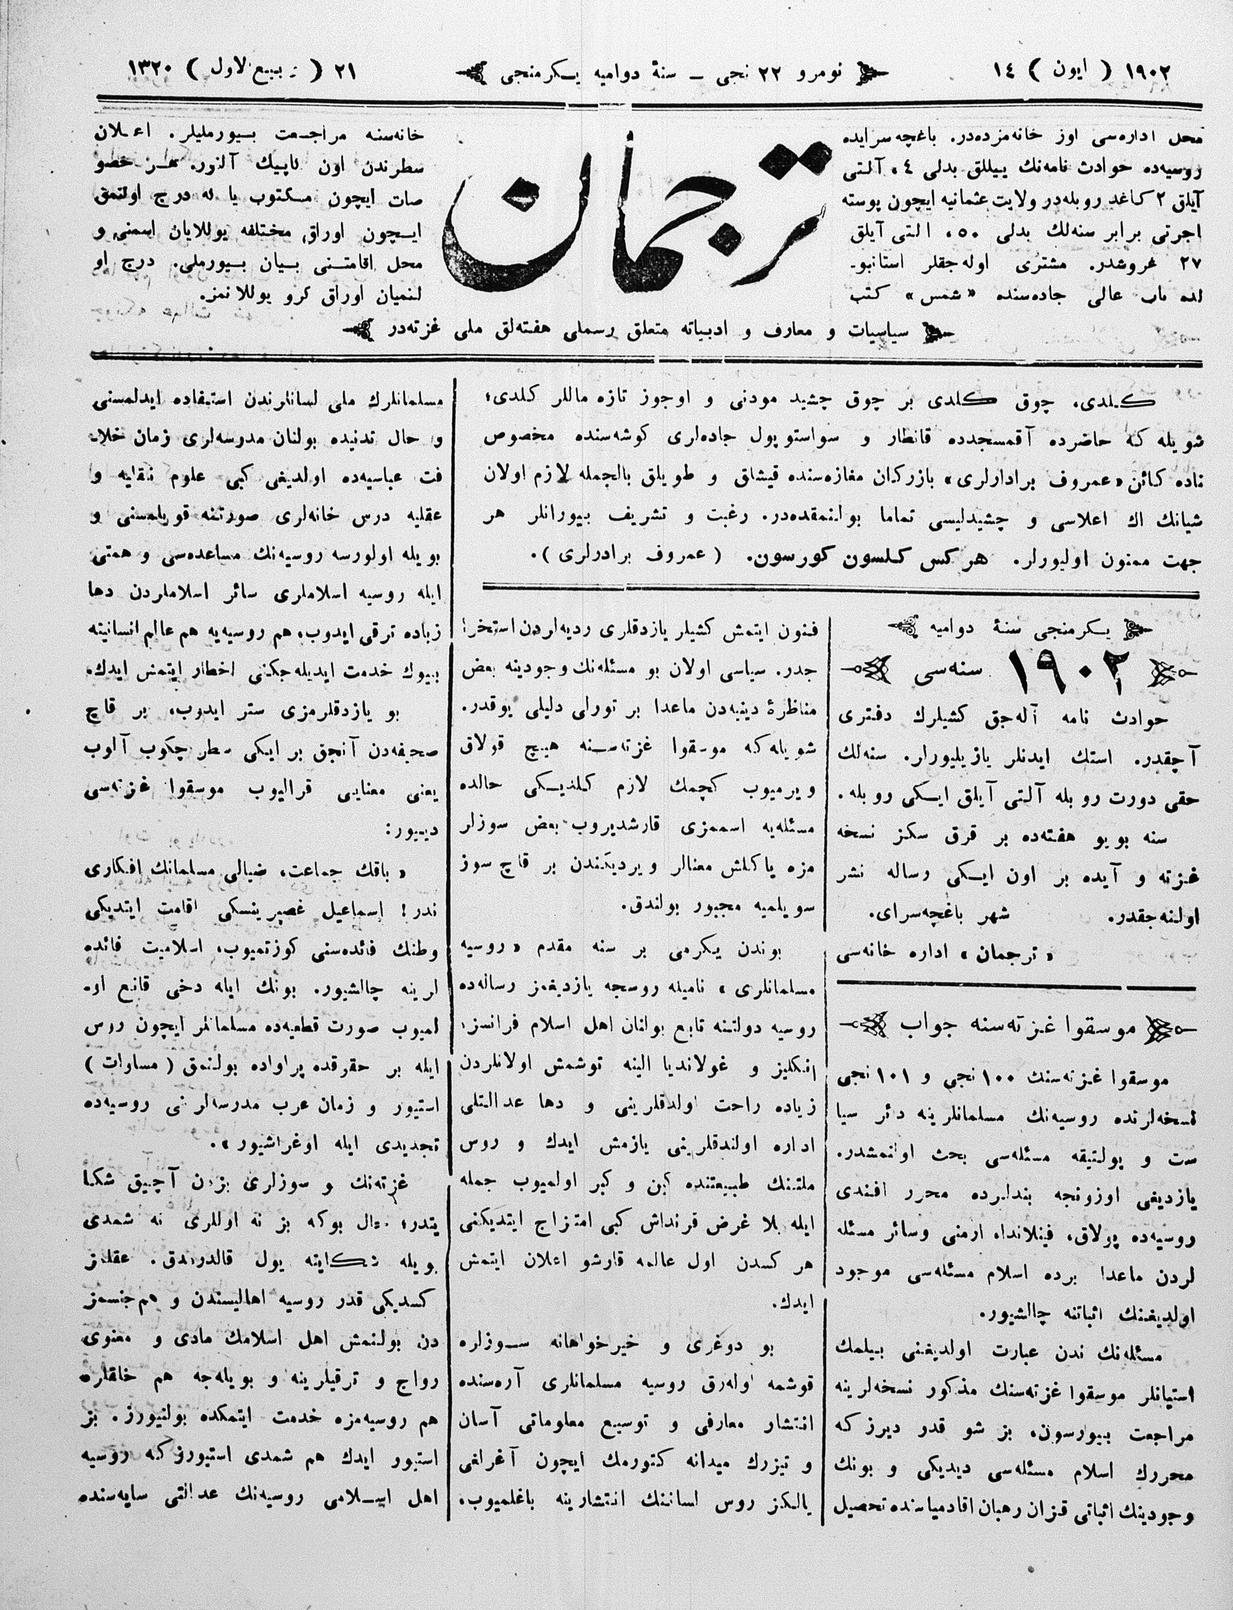 ١٩٠٢ ( ایون ) ١٤
نومرو ٢٢ نجی ــ سنهٔ دوامیه یکرمنجی
٢١ ( ربیع لاول ) ١٣٢٠
محل اداره‌سی اوز خانه‌مزده‌در. باغچه‌سرایده
روسیه‌ده حوادث نامه‌نك ییللق بدلی ٤، آلتی
آیلق ٢ کاغد روبله‌در ولایت عثمانیه ایچون پوسته
اجرتی برابر سنه‌لك بدلی ٥٠، التی آیلق
٢٧ غروشدر. مشتری اوله‌جقلر استانبو۔
لده باب عالی جاده‌سنده «شمس» کتب
ترجمان
خانه‌سنه مراجعت بیورملیلر. اعلان
سطرندن اون قاپیك آلنور. هر خصو
صات ایچون مکتوب یا نه درج اولنمق
ایچون اوراق مختلفه یوللایان اسمنی و
محل اقامتنی بیان بیورملی. درج او
لنمیان اوراق کرو یوللانمز.
سیاسیات و معارف و ادبیاته متعلق رسملی هفته‌لق ملی غزته‌در
کلدی. چوق کلدی بر چوق چشید مودنی و اوجوز تازه ماللر کلدی؛
شویله که حاضرده آقمسجدده قانطار و سواستوپول جاده‌لری کوشه‌سنده مخصوص
ناده کائن «عمروف برادارلری» بازرکان مغازه‌سنده قیشلق و طویلق بالجمله لازم اولان
شیانك اك اعلاسی و چشیدلیسی تماما بولنمقده‌در. رغبت و تشریف بیورانلر هر
جهت ممنون اولیورلر. هرکس کلسون کورسون. ( عمروف برادرلری ).
یکرمنجی سنهٔ دوامیه
١٩٠٢ سنه‌سی
حوادث نامه آله‌جق کشیلرك دفتری
آچقدر. استك ایدنلر یازیلیورلر. سنه‌لك
حقی دورت روبله آلتی آیلق ایکی روبله.
سنه بویو هفته‌ده بر قرق سکز نسخه
غزته و آیده بر اون ایکی رساله نشر
اولنه‌جقدر. شهر باغچه‌سرای.
«ترجمان» اداره خانه‌سی
موسقوا غزته‌سنه جواب
موسقوا غزته‌سنك ١٠٠ نجی و ١٠١ نجی
نسخه‌لرنده روسیه‌نك مسلمانلرینه دائر سیا
ست و پولتیقه مسئله‌سی بحث اولنمشدر.
یازدیغی اوزونجه بندلرده محرر افندی
روسیه‌ده پولاق، فینلاندا، ارمنی وسائر مسئله
لردن ماعدا برده اسلام مسئله‌سی موجود
اولدیغنك اثباتنه چالشیور.
مسئله‌نك ندن عبارت اولدیغنی بیلمك
استیانلر موسقوا غزته‌سنك مذکور نسخه‌لرینه
مراجعت بیورسون، بز شو قدر دیرز که
محررك اسلام مسئله‌سی دیدیکی و بونك
وجودینك اثباتی قزان رهبان اقادمیاسنده تحصیل
فنون ایتمش کشیلر یازدقلری ردیه‌لردن استخرا
جدر. سیاسی اولان بو مسئله‌نك وجودینه بعض
مناظرهٔ دینیه‌دن ماعدا بر تورلی دلیلی یوقدر.
شویله که موسقوا غزته‌سنه هیچ قولاق
ویرمیوب کچمك لازم کلدیکی حالده
مسئله‌یه اسممزی قارشدیروب بعض سوزلر
مزه یاکلش معنالر ویردیکندن بر قاچ سوز
سویلمیه مجبور بولندق.
بوندن یکرمی بر سنه مقدم «روسیه
مسلمانلری» نامیله روسجه یازدیغمز رساله‌ده
روسیه دولتنه تابع بولنان اهل اسلام فرانسز،
انکلیز و غوللاندیا الینه توشمش اولانلردن
زیاده راحت اولدقلرینی و دها عدالتلی
اداره اولندقلرینی یازمش ایدك و روس
ملتنك طبیعتنده کین و کبر اولمیوب جمله
ایله بلا غرض قرنداش کبی امتزاج ایتدیکنی
هر کسدن اول عالمه قارشو اعلان ایتمش
ایدك.
بو دوغری و خیرخواهانه سوزلره
قوشمه اوله‌رق روسیه مسلمانلری آره‌سنده
انتشار معارفی و توسیع معلوماتی آسان
و تیزرك میدانه کتورمك ایچون آغرلغی
یالکز روس لساننك انتشارینه باغلمیوب،
مسلمانلرك ملی لسانلرندن استفاده ایدلمسنی
و حال تدنیده بولنان مدرسه‌لری زمان خلا۔
فت عباسیه‌ده اولدیغی کبی علوم نقلیه و
عقلیه درس خانه‌لری صورتنه قویلمسنی و
بویله اولورسه روسیه‌نك مساعده‌سی و همتی
ایله روسیه اسلاملری سائر اسلاملردن دها
زیاده ترقی ایدوب، هم روسیه‌یه هم عالم انسانیته
بیوك خدمت ایدیله‌جکنی اخطار ایتمش ایدك.
بو یازدقلرمزی ستر ایدوب، بر قاچ
صحیفه‌دن آنجق بر ایکی سطر چکوب آلوب
یعنی معنایی قرالیوب موسقوا غزته‌سی
دییور:
«باقك جماعت، ضیالی مسلمانك افکاری
ندر! اسماعیل غصپرینسکی اقامت ایتدیکی
وطنك فائده‌سنی کوزتمیوب، اسلامیت فائده
لرینه چالشیور. بونك ایله دخی قانع او۔
لمیوب صورت قطعیه‌ده مسلمانلر ایچون روس
ایله بر حقوقده پراواده بولنمق (مساوات)
استیور و زمان عرب مدرسه‌لرنی روسیه‌ده
تجدیدی ایله اوغراشیور».
غزته‌نك و سوزلری بزدن آچیق شکا
یتدر؛ حال بوکه بز نه اوللری نه شمدی
بویله شکایته یول قالدرمدق. عقلمز
کسدیکی قدر روسیه اهالیسندن و هم‌جنسمز
دن بولنمش اهل اسلامك مادی و معنوی
رواج و ترقیلرینه و بویله‌جه هم خلقلره
هم روسیه‌مزه خدمت ایتمکده بولنیورز. بز
استیور ایدك هم شمدی استیورز که روسیه
اهل اسلامی روسیه‌نك عدالتی سایه‌سنده